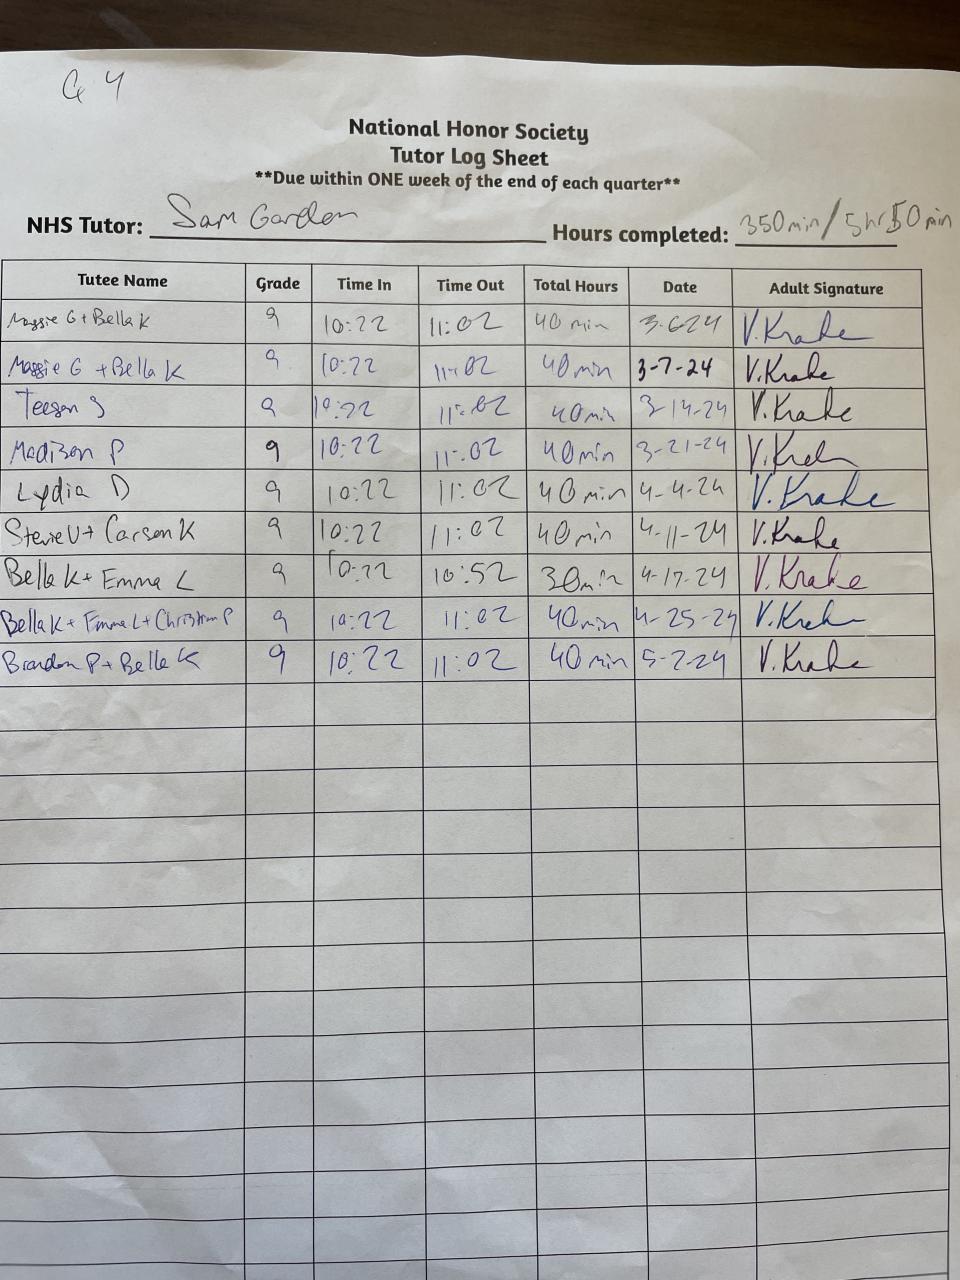 Q 4
National Honor Society
Tutor Log Sheet
**Due within ONE week of the end of each quarter**
NHS Tutor: Sam Garden Hours completed: 350 min / 5 hr 50 min
Tutee Name Grade Time In Time Out Total Hours Date Adult Signature
Maggie G + Bella K 9 10:22 11:02 40 min 3-6-24 V. Krahe
Maggie G + Bella K 9 10:22 11:02 40 min 3-7-24 V. Krahe
Teegan S 9 10:22 11:02 40 min 3-14-24 V. Krahe
Madison P 9 10:22 11:02 40 min 3-21-24 V. Krahe
Lydia D 9 10:22 11:02 40 min 4-4-24 V. Krahe
Stevie U + Carson K 9 10:22 11:02 40 min 4-11-24 V. Krahe
Bella K + Emma L 9 10:22 10:52 30 min 4-17-24 V. Krahe
Bella K + Emma L + Christian P 9 10:22 11:02 40 min 4-25-24 V. Krahe
Brandon P + Bella K 9 10:22 11:02 40 min 5-2-24 V. Krahe